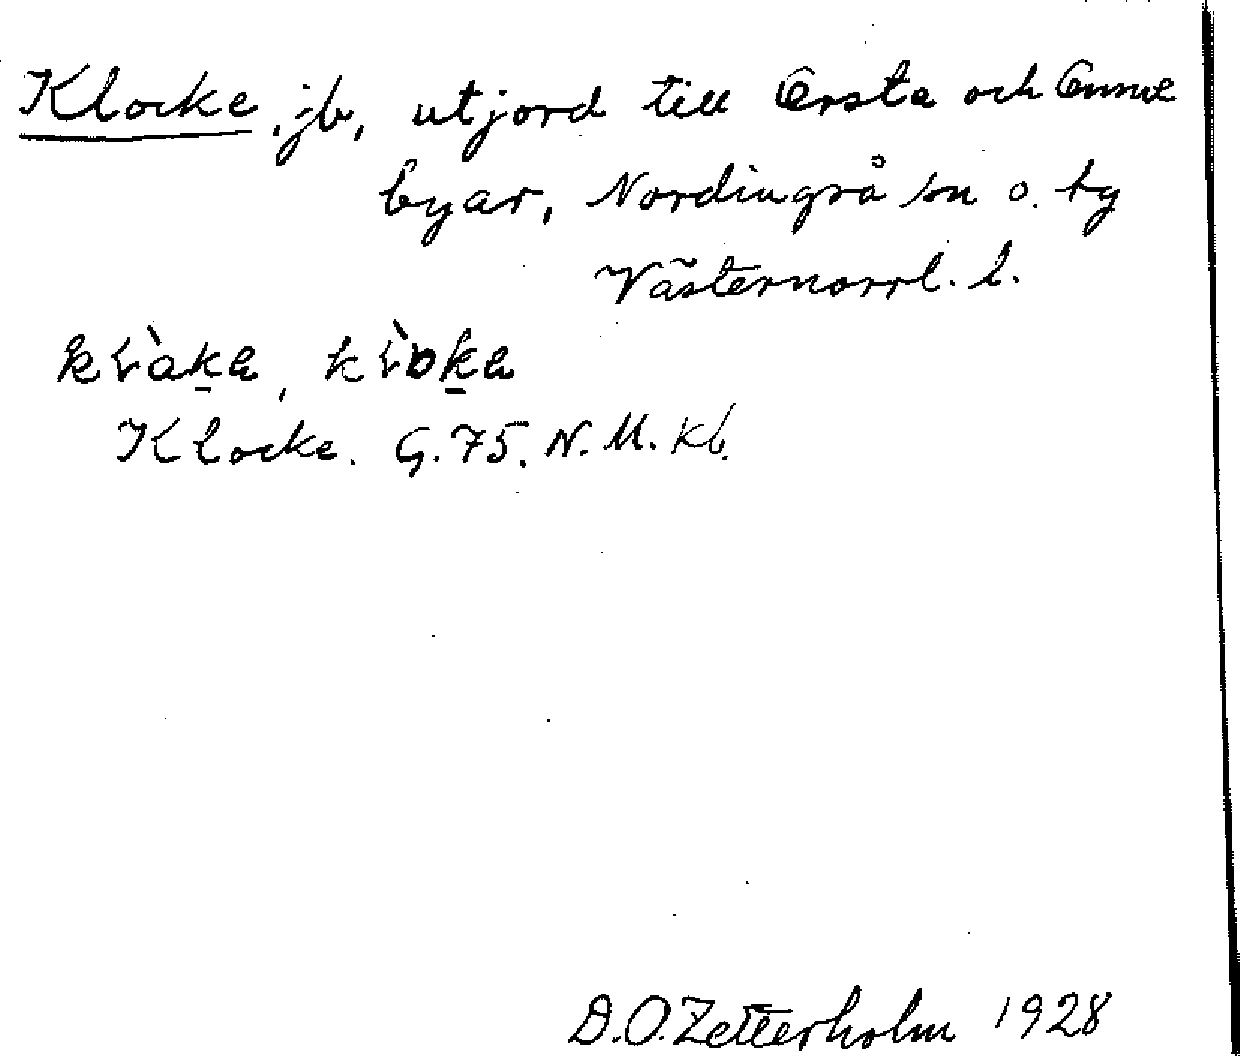 Klocke, jb, utjord till Örsta och
byar, Nordingrå sn o. tg
Västernorrl. l.
Klocke. G.75. N.M. Kb.
D.O. Zetterholm 1928